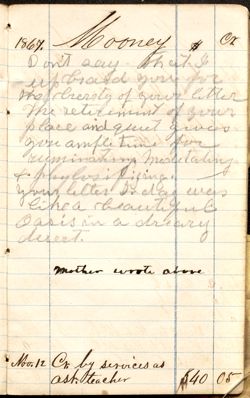 1867. Mooney $ Cr
Don't say that I
upbraid you for
the brevity of your letter
The retirement of your
place and quiet gives
you ample time for
ruminating meditating
& phylosiphising.
your letter Indeed was
like a beautiful
Oasis in a dreary
desert.
Mother wrote above
Nov. 12 Cr by services as
asst. teacher $40 05